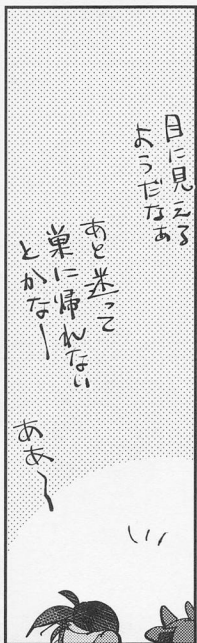 目に見える
ようだなぁ
あと迷って
巣に帰れない
とかなー
ああ〜